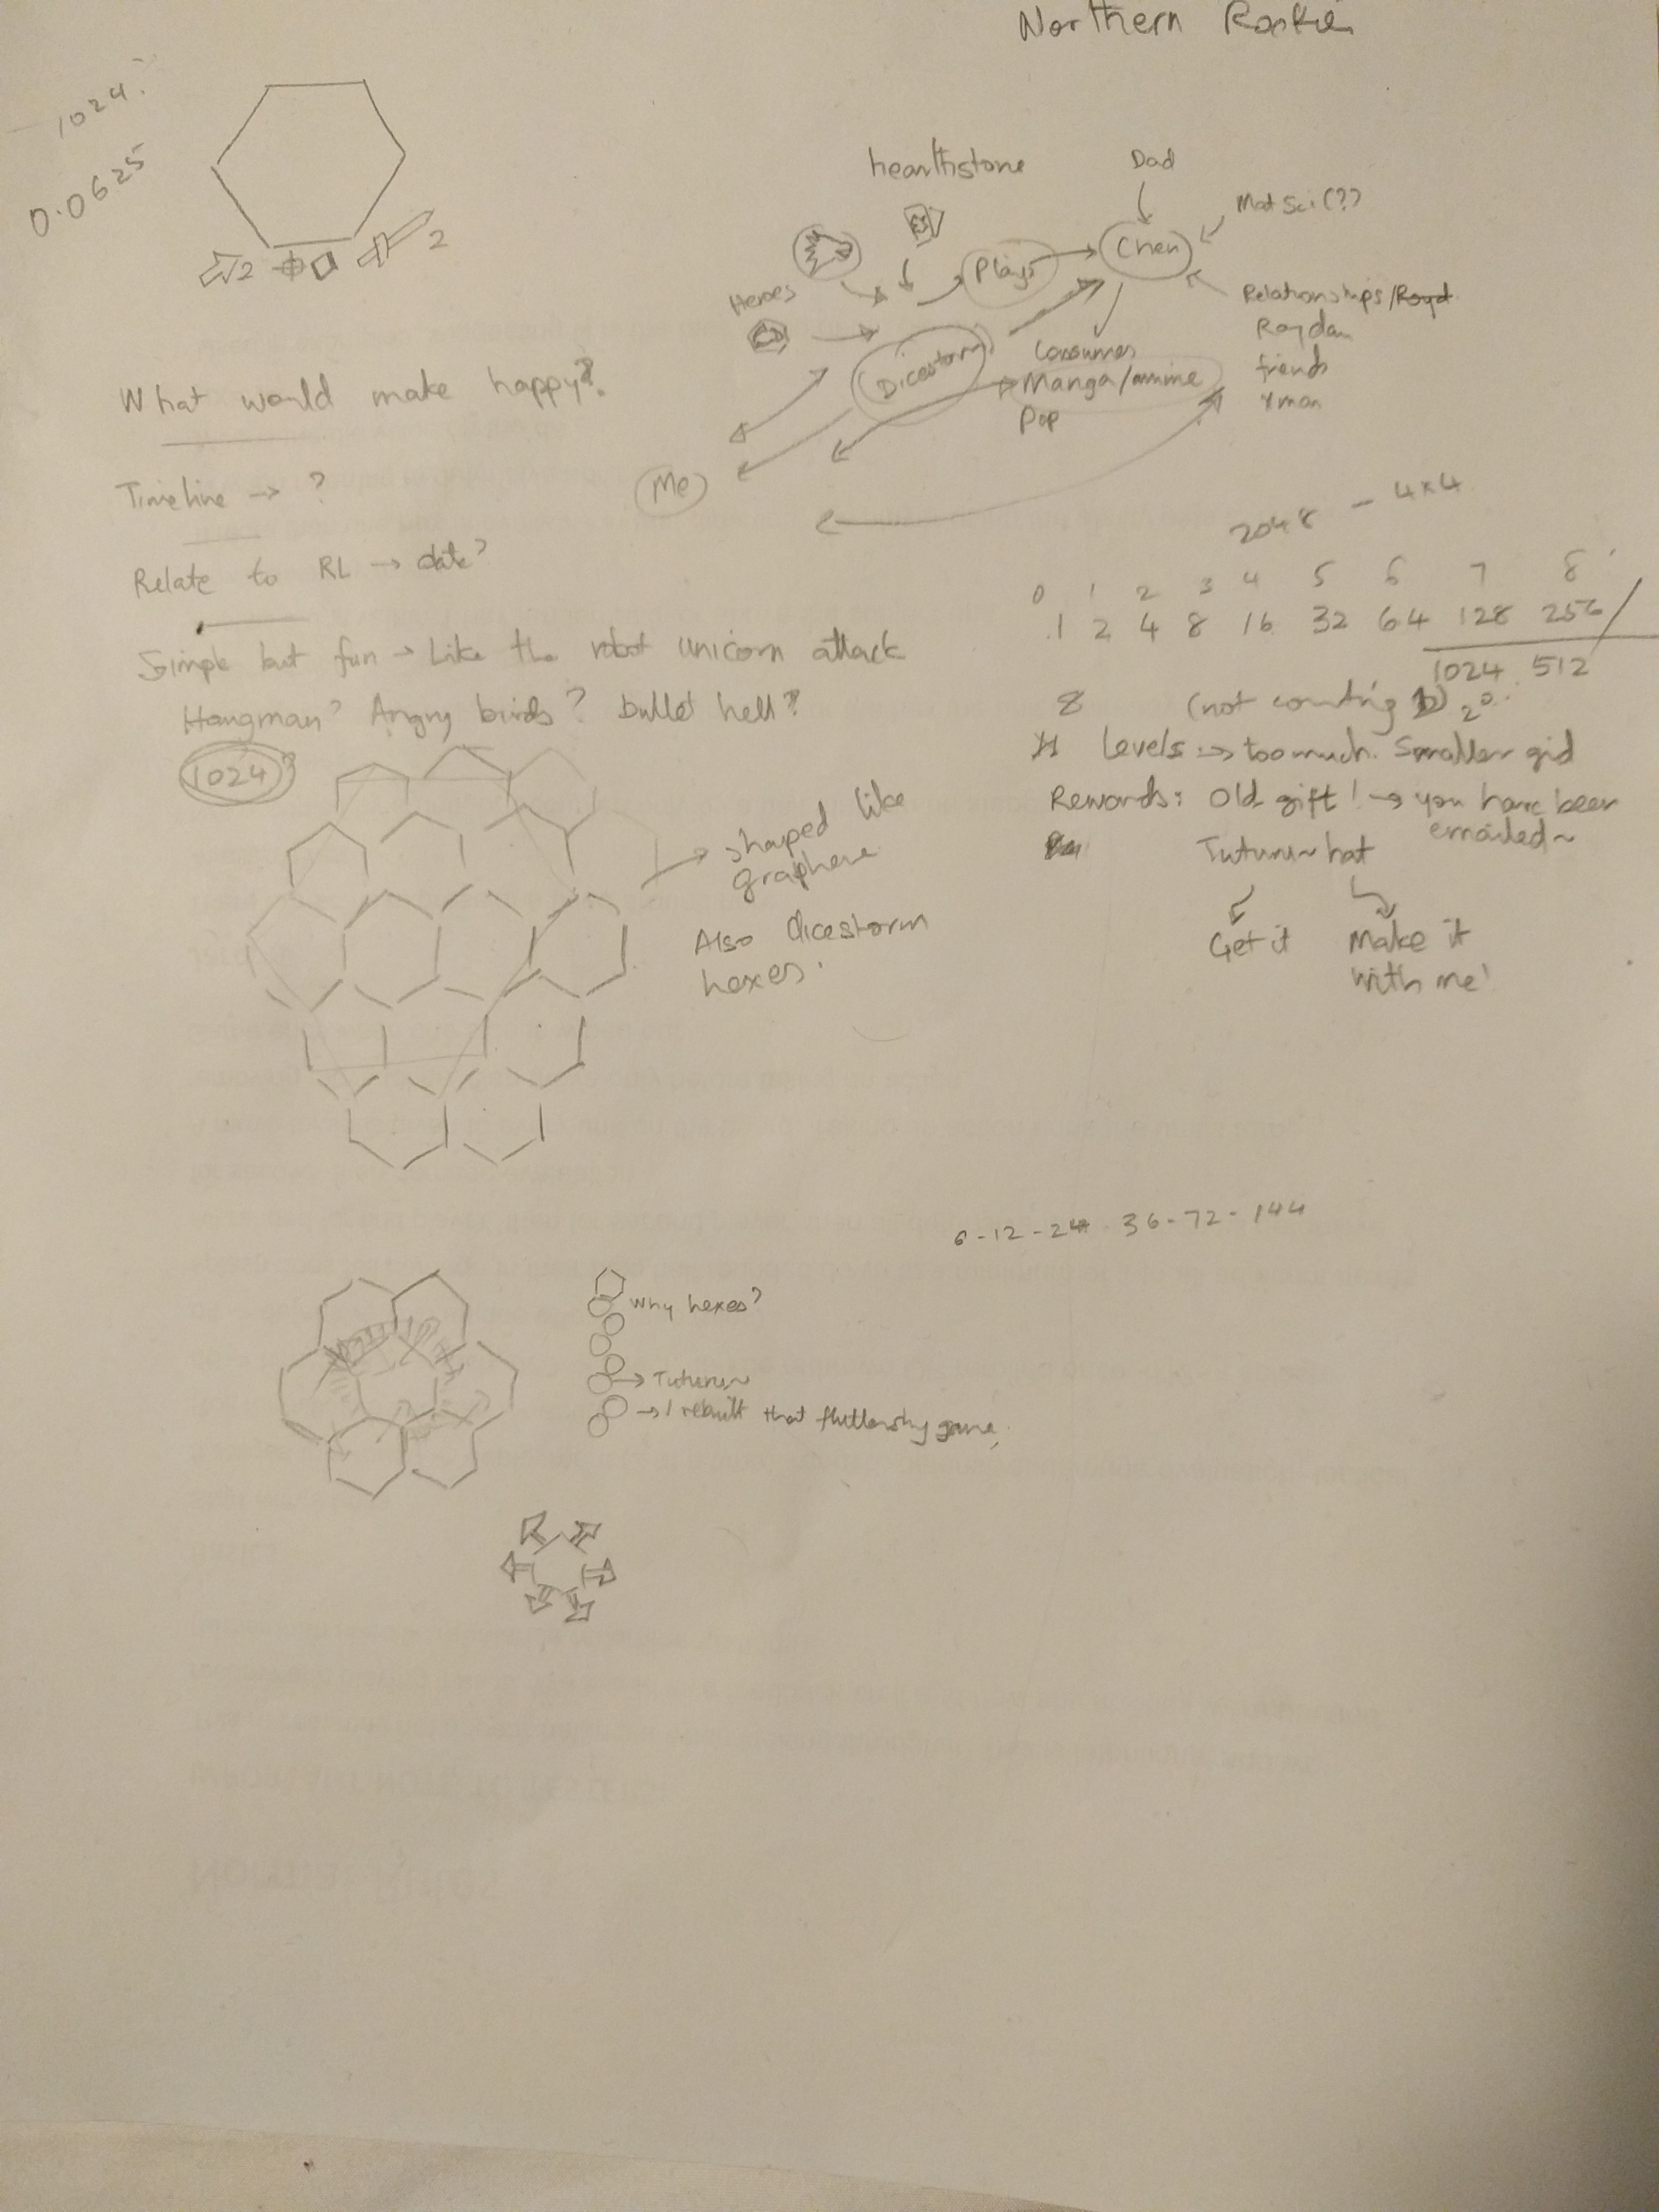 Northern
1024.
0.0625
2
2
hearthstone
Dad
Mat Sci (??)
Heroes
Plays
Chen
Relationships/Royd
Roydan
friends
Dicestorm
Consumes
Manga/anime
Pop
Me
What would make happy?
Timeline → ?
Relate to RL → date?
Simple but fun → Like the robot unicorn attack
Hangman? Angry birds? bullet hell?
1024?
shaped like
graphene
Also dicestorm
hexes.
2048 - 4x4
0 1 2 3 4 5 6 7 8
1 2 4 8 16 32 64 128 256
1024 512
8 (not counting 2⁰.
Levels → too much. Smaller grid
Rewards: Old gift! → you have been
emailed~
Tuturu~ hat
Get it
Make it
with me!
6-12-24 36-72-144
Why hexes?
→ Tuturu~
→ I rebuilt that fluttershy game.